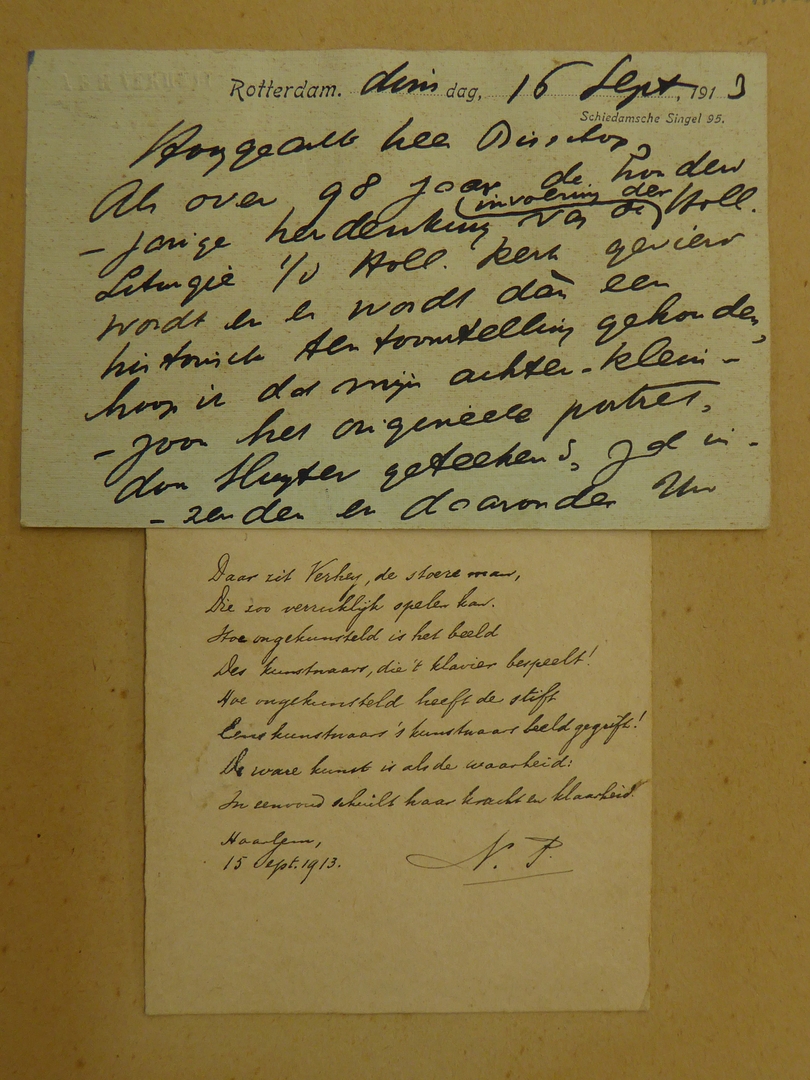 Rotterdam. dinsdag, 16 Sept, 1913
Schiedamsche Singel 95.
Hooggeachte heer Bisschop,
Als over 98 jaar de honderd
- jarige herdenking (invoering der) van de Holl.
Liturgie i/d Holl. kerk gevierd
wordt en er wordt dan een
historische tentoonstelling gehouden,
hoop ik dat mijn achter-klein-
- zoon het origineele portret,
door Sluyter geteekend, zal in-
- zenden en daaronder Uw
Daar zit Verhey, de stoere man,
Die zoo verruklijk spelen kan.
Hoe ongekunsteld is het beeld
Des kunstnaars, die 't klavier bespeelt!
Hoe ongekunsteld heeft de stift
Eens kunstnaars 's kunstnaars beeld gegrift!
De ware kunst is als de waarheid:
In eenvoud schuilt haar kracht en klaarheid.
Haarlem,
15 Sept. 1913.
N. P.